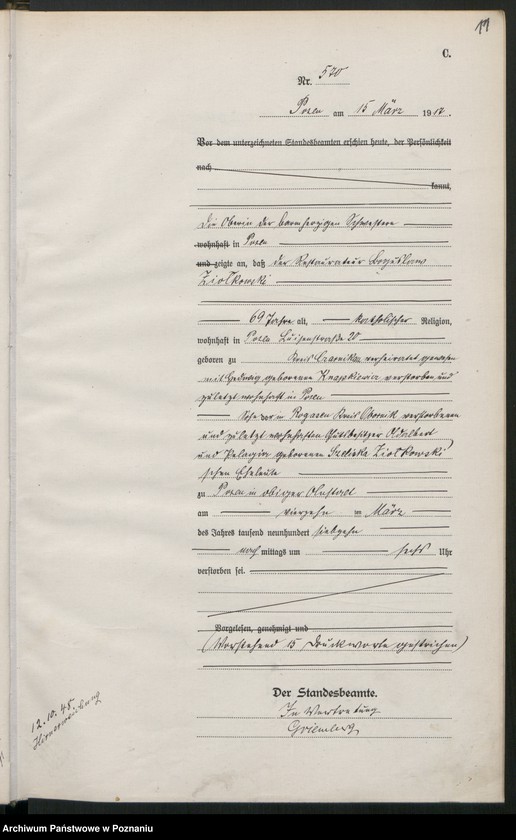 17
C.
Nr. 570
Posen am 15 März 1917.
Vor dem unterzeichneten Standesbeamten erschien heute, der Persönlichkeit
nach
kannt,
die Oberin der barmherzigen Schwestern
wohnhaft in Posen
und zeigte an, daß der Restaurateur Boguslaw
Ziolkowski
69 Jahre alt, katholischer Religion,
wohnhaft in Posen Luisenstraße 20
geboren zu Kreis Czarnikau, verheiratet gewesen
mit Hedwig geborenen verstorben und
zuletzt wohnhaft in Posen
Sohn der in Rogasen Kreis Obornik verstorbenen
und zuletzt wohnhaften Gutsbesitzer Adalbert
und Pelagia geborenen Ziolkowski
schen Eheleute
zu Posen in obiger Anstalt
am vierzehn ten März
des Jahres tausend neunhundert siebzehn
nach mittags um sechs Uhr
verstorben sei.
Vorgelesen, genehmigt und
(Vorstehend 15 Druckworte gestrichen)
Der Standesbeamte.
In Vertretung
12.10.45
Archiwum Państwowe w Poznaniu